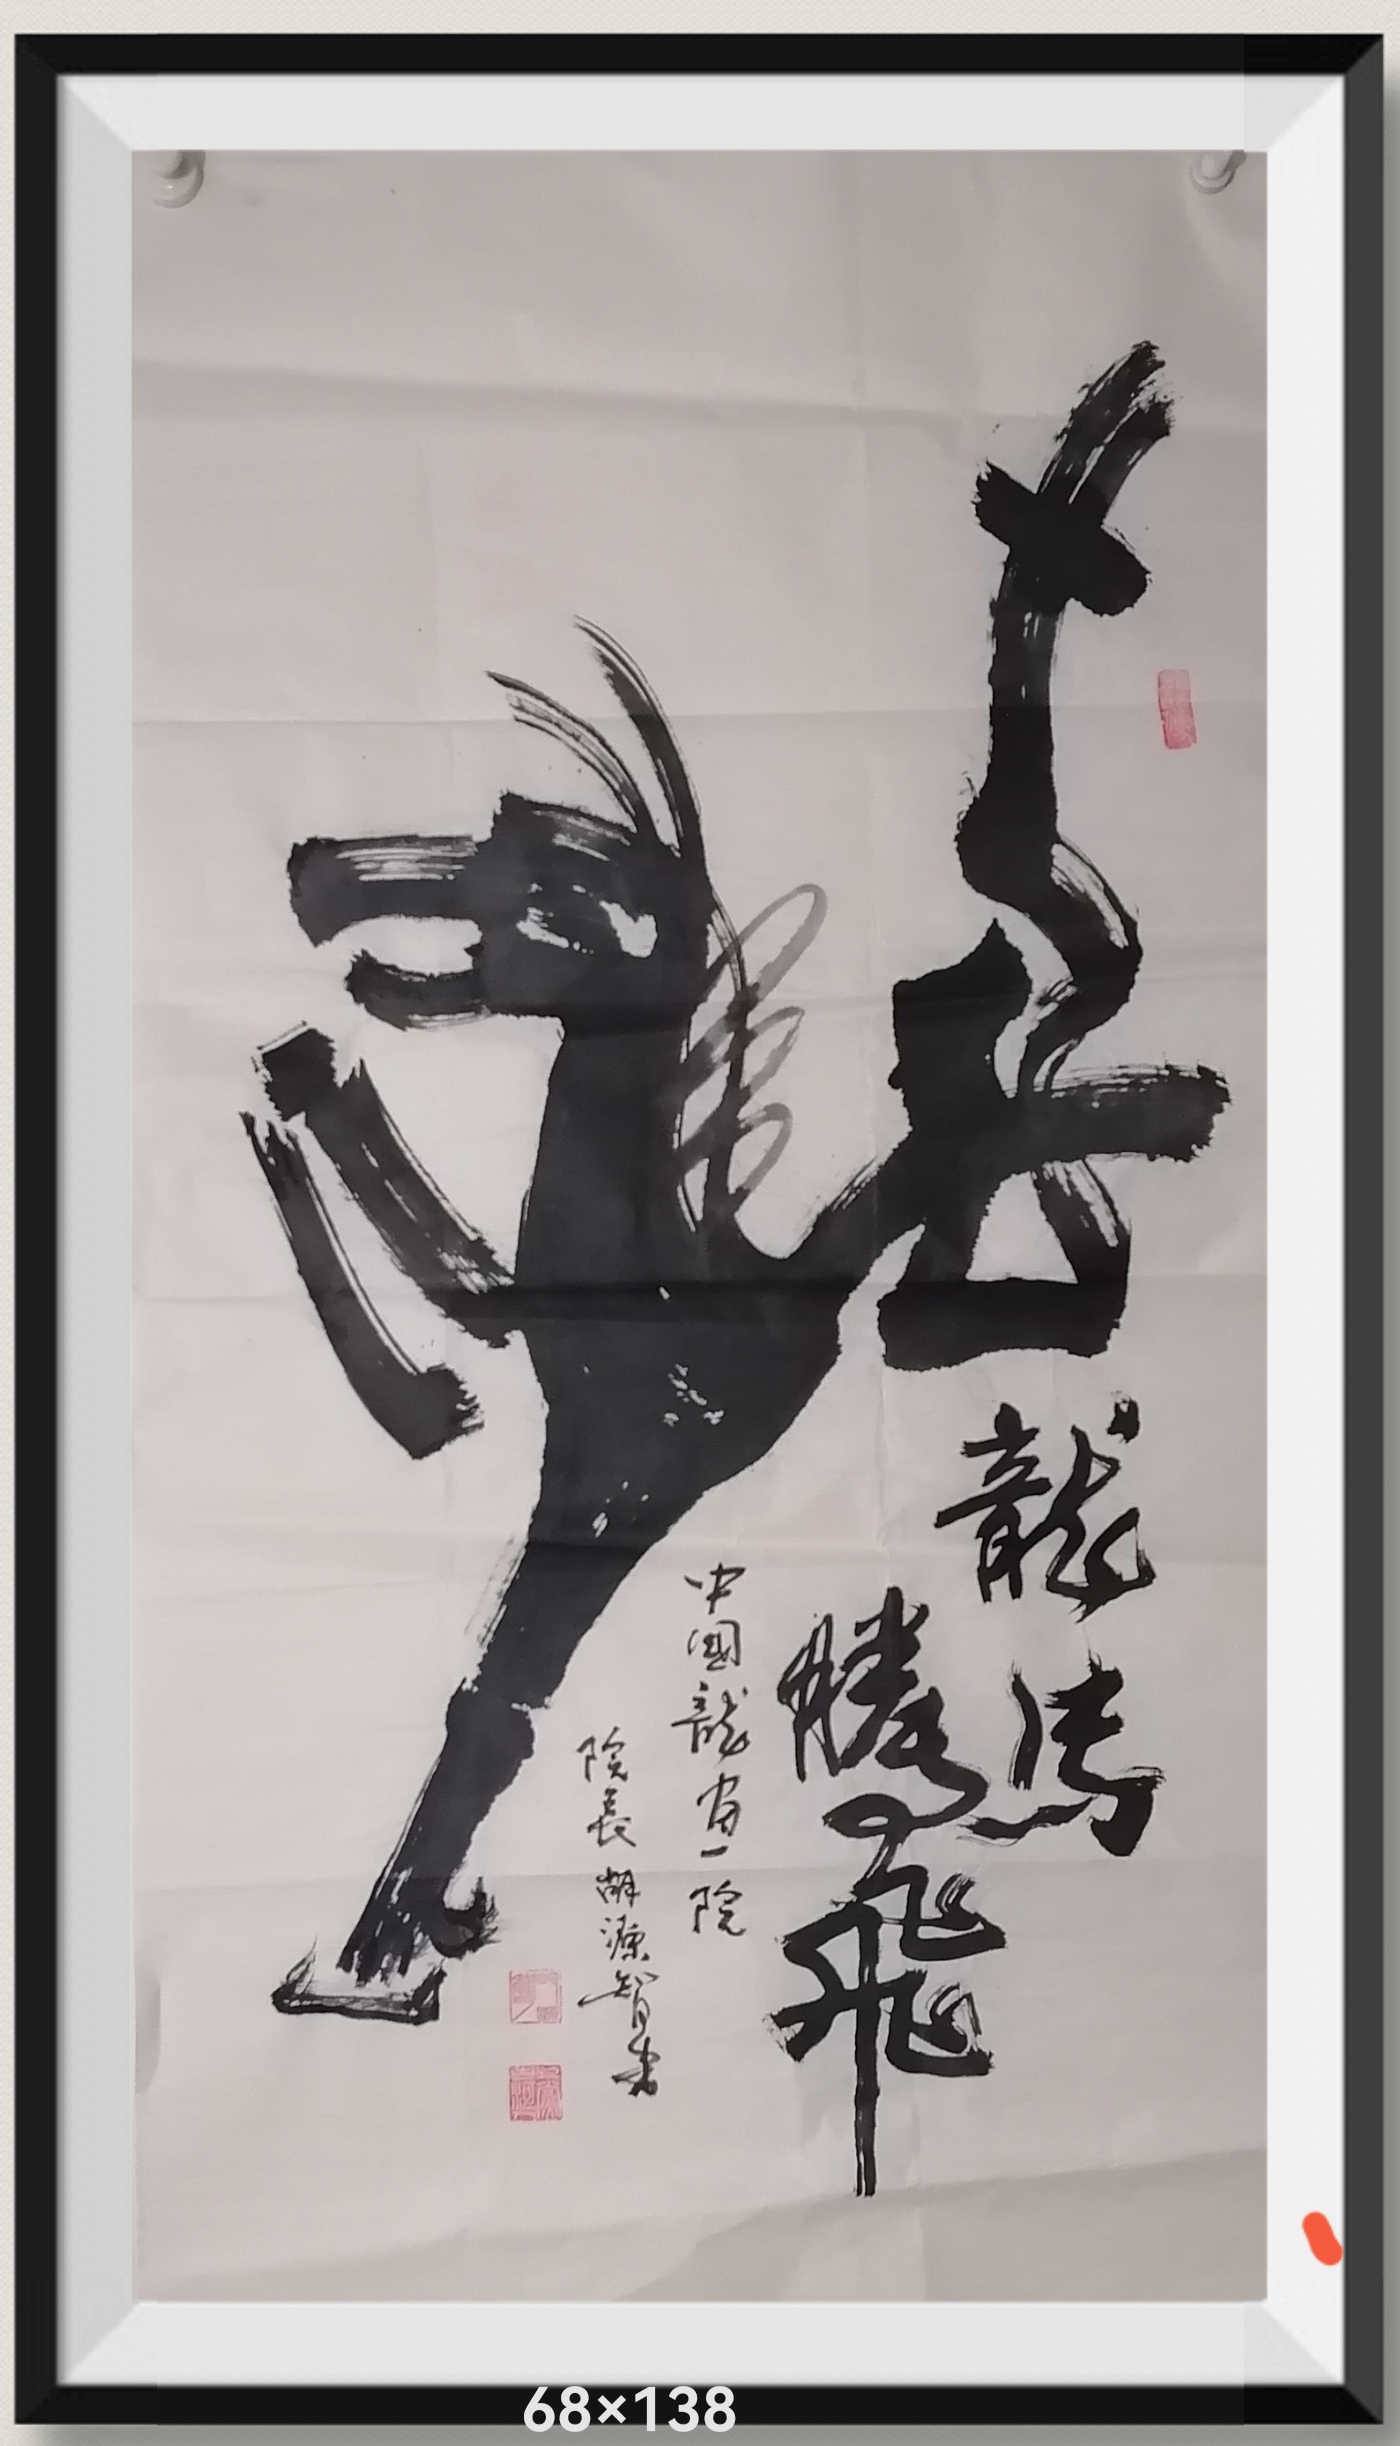 龍馬
騰飛
中國龍畫院
院長胡源智書
68×138